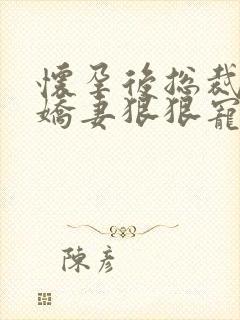 懷孕後總裁
嬌妻狠狠寵
陳彥